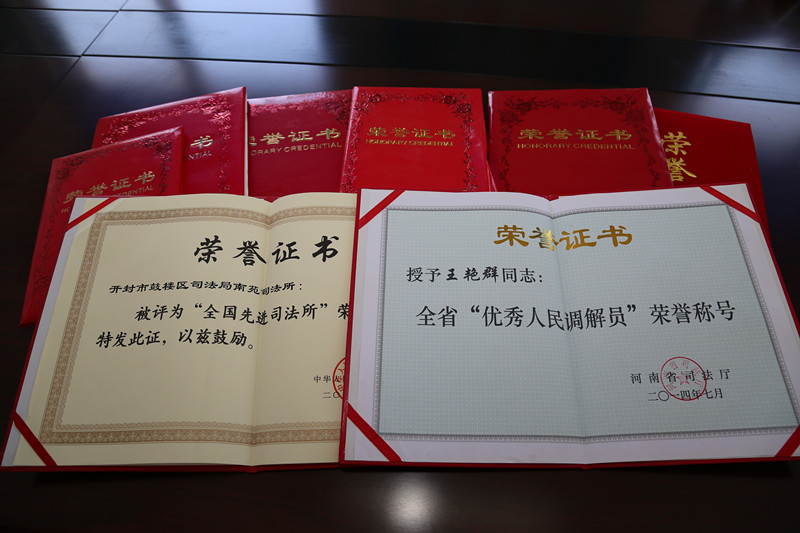 荣誉证书
HONORARY CREDENTIAL
荣誉证书
HONORARY CREDENTIAL
荣誉
荣誉证书
开封市鼓楼区司法局南苑司法所：
被评为“全国先进司法所”荣
特发此证，以兹鼓励。
中华
二〇
荣誉证书
授予王艳群同志：
全省“优秀人民调解员”荣誉称号
河南省司法厅
二〇一四年七月